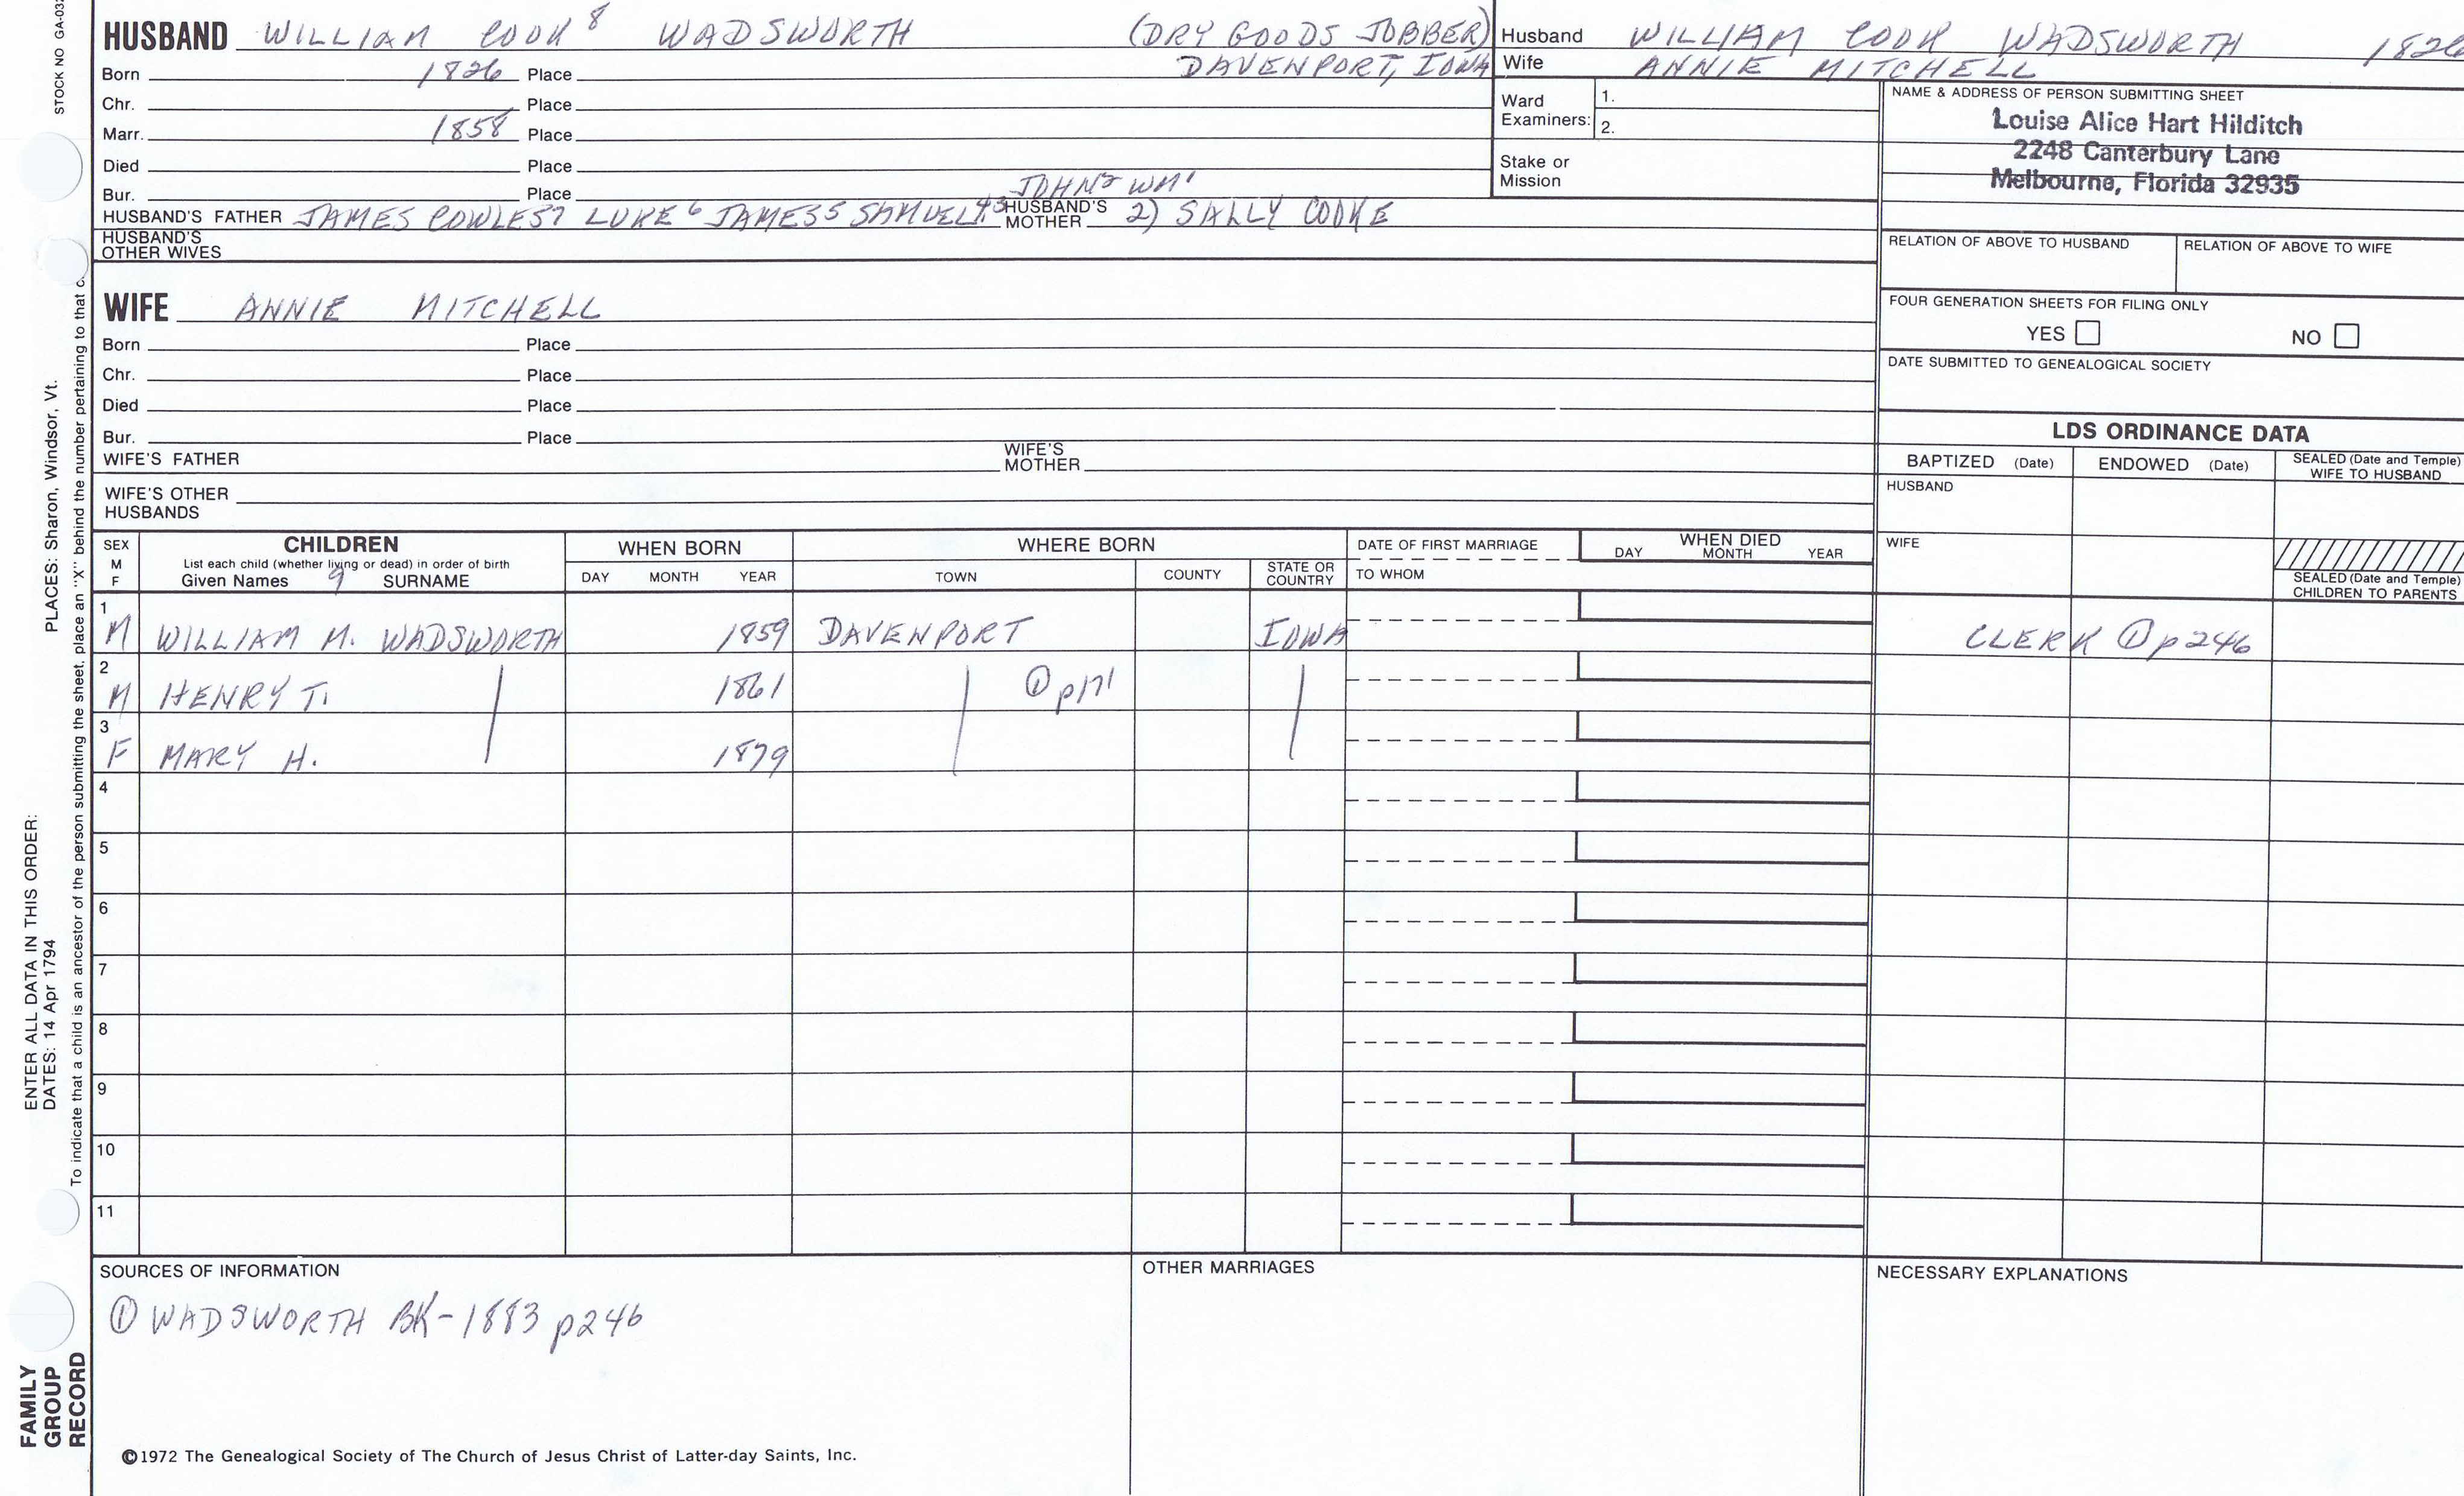 STOCK NO GA-032
HUSBAND WILLIAM COOK 8 WADSWORTH (DRY GOODS JOBBER)
Born 1826 Place DAVENPORT, IOWA
Chr. Place
Marr. 1858 Place
Died Place
Bur. Place JOHN2 WM1
HUSBAND'S FATHER JAMES COWLES7 LUKE6 JAMES5 SAMUEL4,3 HUSBAND'S MOTHER 2) SALLY COOKE
HUSBAND'S OTHER WIVES
WIFE ANNIE MITCHELL
Born Place
Chr. Place
Died Place
Bur. Place
WIFE'S FATHER WIFE'S MOTHER
WIFE'S OTHER HUSBANDS
Husband WILLIAM COOK WADSWORTH 1826
Wife ANNIE MITCHELL
Ward Examiners: 1.
2.
Stake or Mission
NAME & ADDRESS OF PERSON SUBMITTING SHEET
Louise Alice Hart Hilditch
2248 Canterbury Lane
Melbourne, Florida 32935
RELATION OF ABOVE TO HUSBAND RELATION OF ABOVE TO WIFE
FOUR GENERATION SHEETS FOR FILING ONLY
YES NO
DATE SUBMITTED TO GENEALOGICAL SOCIETY
LDS ORDINANCE DATA
BAPTIZED (Date) ENDOWED (Date) SEALED (Date and Temple) WIFE TO HUSBAND
HUSBAND
WIFE
SEALED (Date and Temple) CHILDREN TO PARENTS
SEX M F
CHILDREN
List each child (whether living or dead) in order of birth
Given Names 9 SURNAME
WHEN BORN
DAY MONTH YEAR
WHERE BORN
TOWN COUNTY STATE OR COUNTRY
DATE OF FIRST MARRIAGE
TO WHOM
WHEN DIED
DAY MONTH YEAR
1 M WILLIAM M. WADSWORTH 1859 DAVENPORT IOWA CLERK ① p246
2 M HENRY T. 1861 ① p171
3 F MARY H. 1879
4
5
6
7
8
9
10
11
SOURCES OF INFORMATION
① WADSWORTH BK-1883 p246
OTHER MARRIAGES
NECESSARY EXPLANATIONS
©1972 The Genealogical Society of The Church of Jesus Christ of Latter-day Saints, Inc.
FAMILY GROUP RECORD
ENTER ALL DATA IN THIS ORDER:
DATES: 14 Apr 1794
PLACES: Sharon, Windsor, Vt.
To indicate that a child is an ancestor of the person submitting the sheet, place an "X" behind the number pertaining to that c